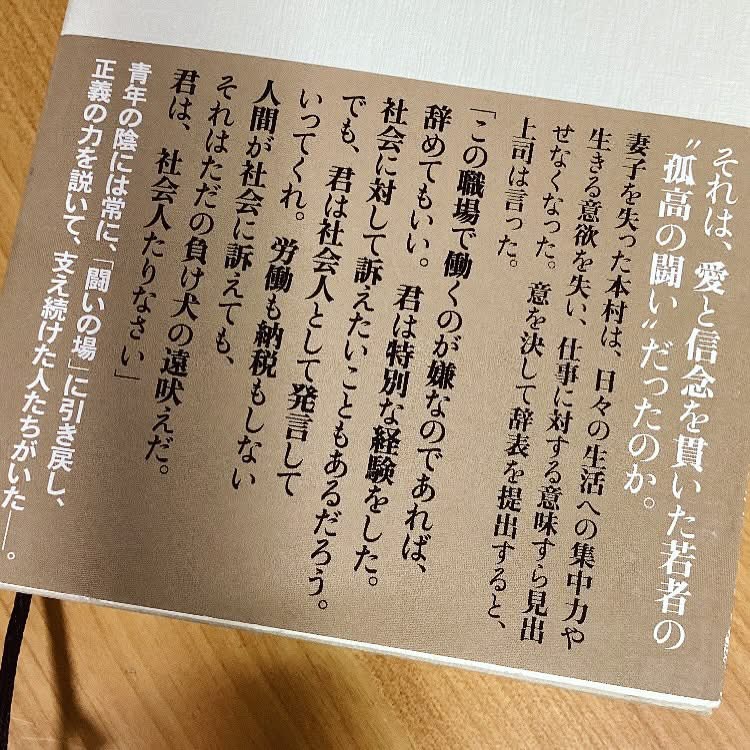 それは、愛と信念を貫いた若者の
“孤高の闘い”だったのか。
妻子を失った本村は、日々の生活への集中力や
生きる意欲を失い、仕事に対する意味すら見出
せなくなった。意を決して辞表を提出すると、
上司は言った。
「この職場で働くのが嫌なのであれば、
辞めてもいい。君は特別な経験をした。
社会に対して訴えたいこともあるだろう。
でも、君は社会人として発言して
いってくれ。労働も納税もしない
人間が社会に訴えても、
それはただの負け犬の遠吠えだ。
君は、社会人たりなさい」
青年の陰には常に、「闘いの場」に引き戻し、
正義の力を説いて、支え続けた人たちがいた──。